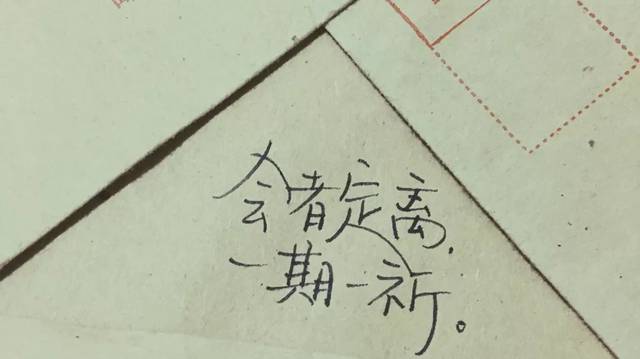 会者定离，
一期一祈。